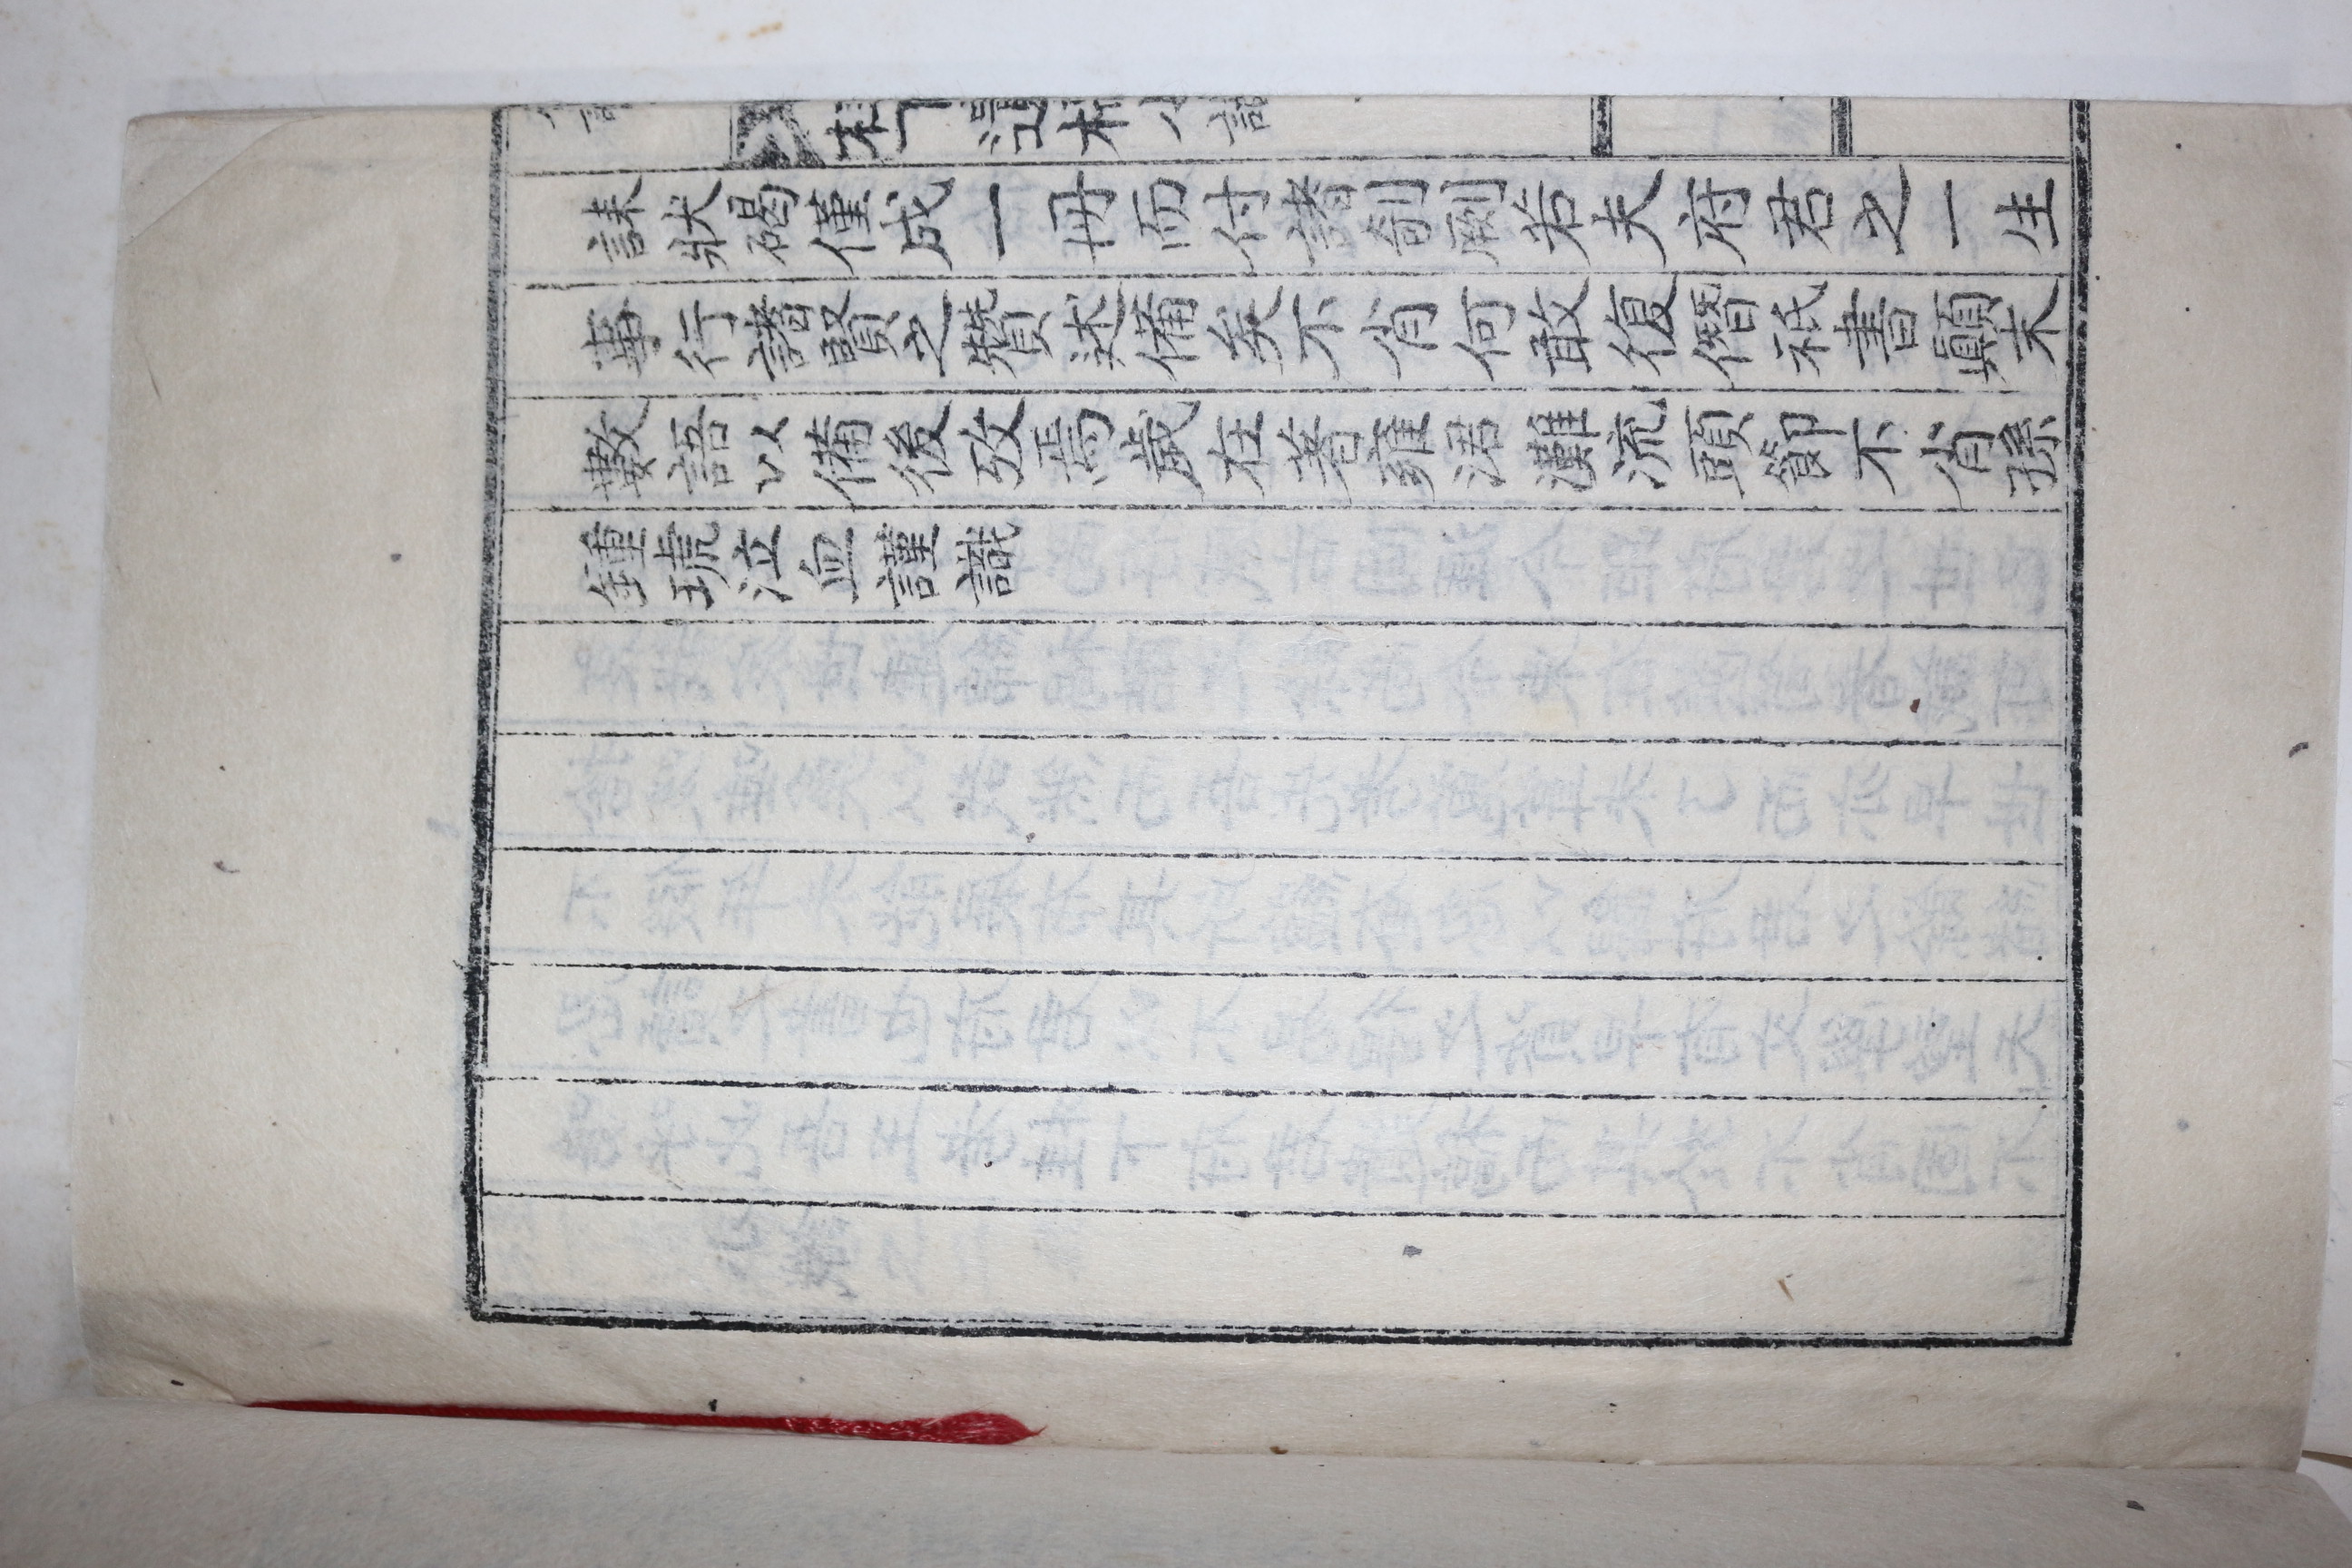 桂下遺稿小識
誄狀碣僅成一冊而付諸剞劂若夫府君之一生
事行諸賢之贊述備矣不肖何敢復僭祇書顚末
數語以備後攷焉歲在著雍涒灘流頭節不肖孫
鍾琥泣血謹識